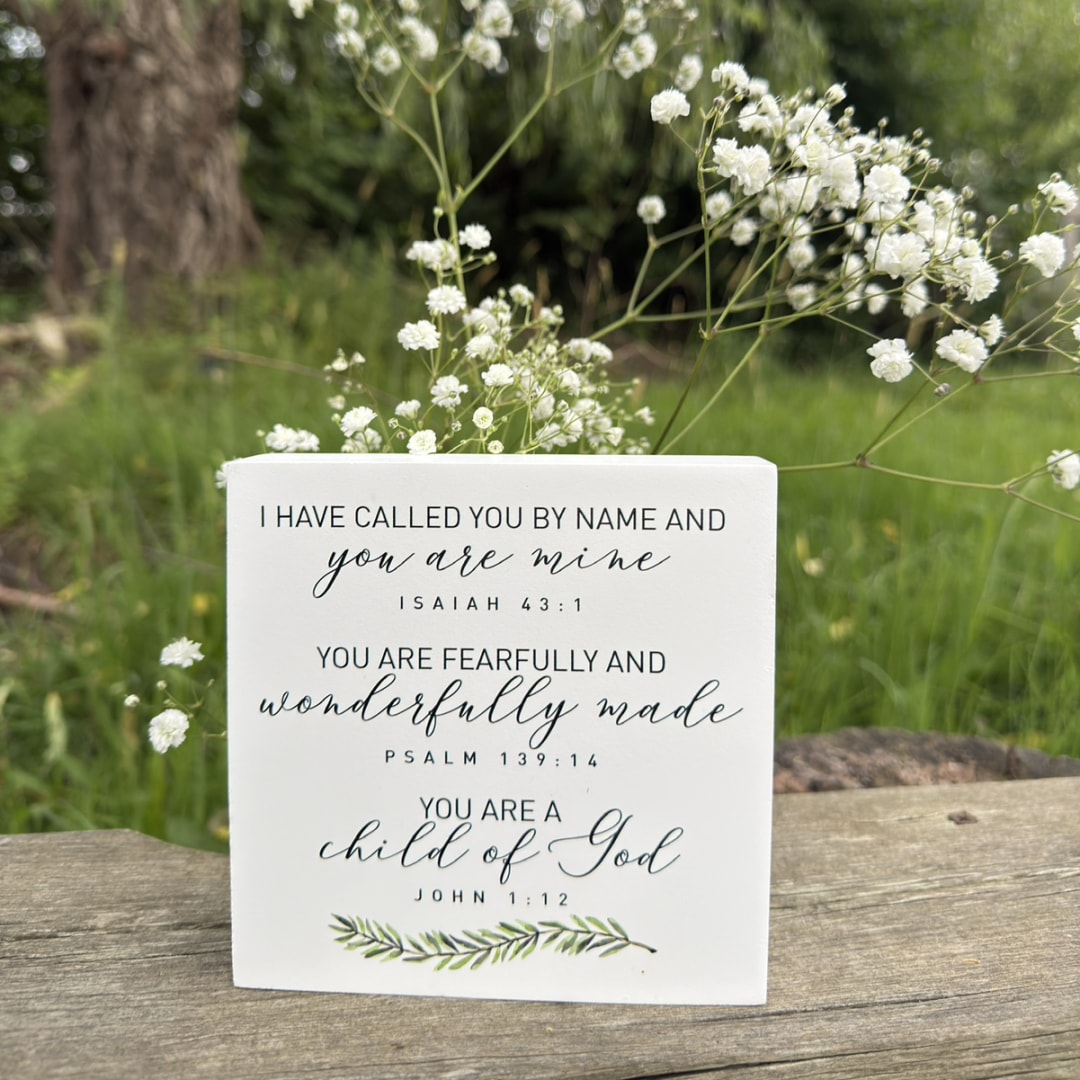 I HAVE CALLED YOU BY NAME AND
you are mine
ISAIAH 43:1
YOU ARE FEARFULLY AND
wonderfully made
PSALM 139:14
YOU ARE A
child of God
JOHN 1:12